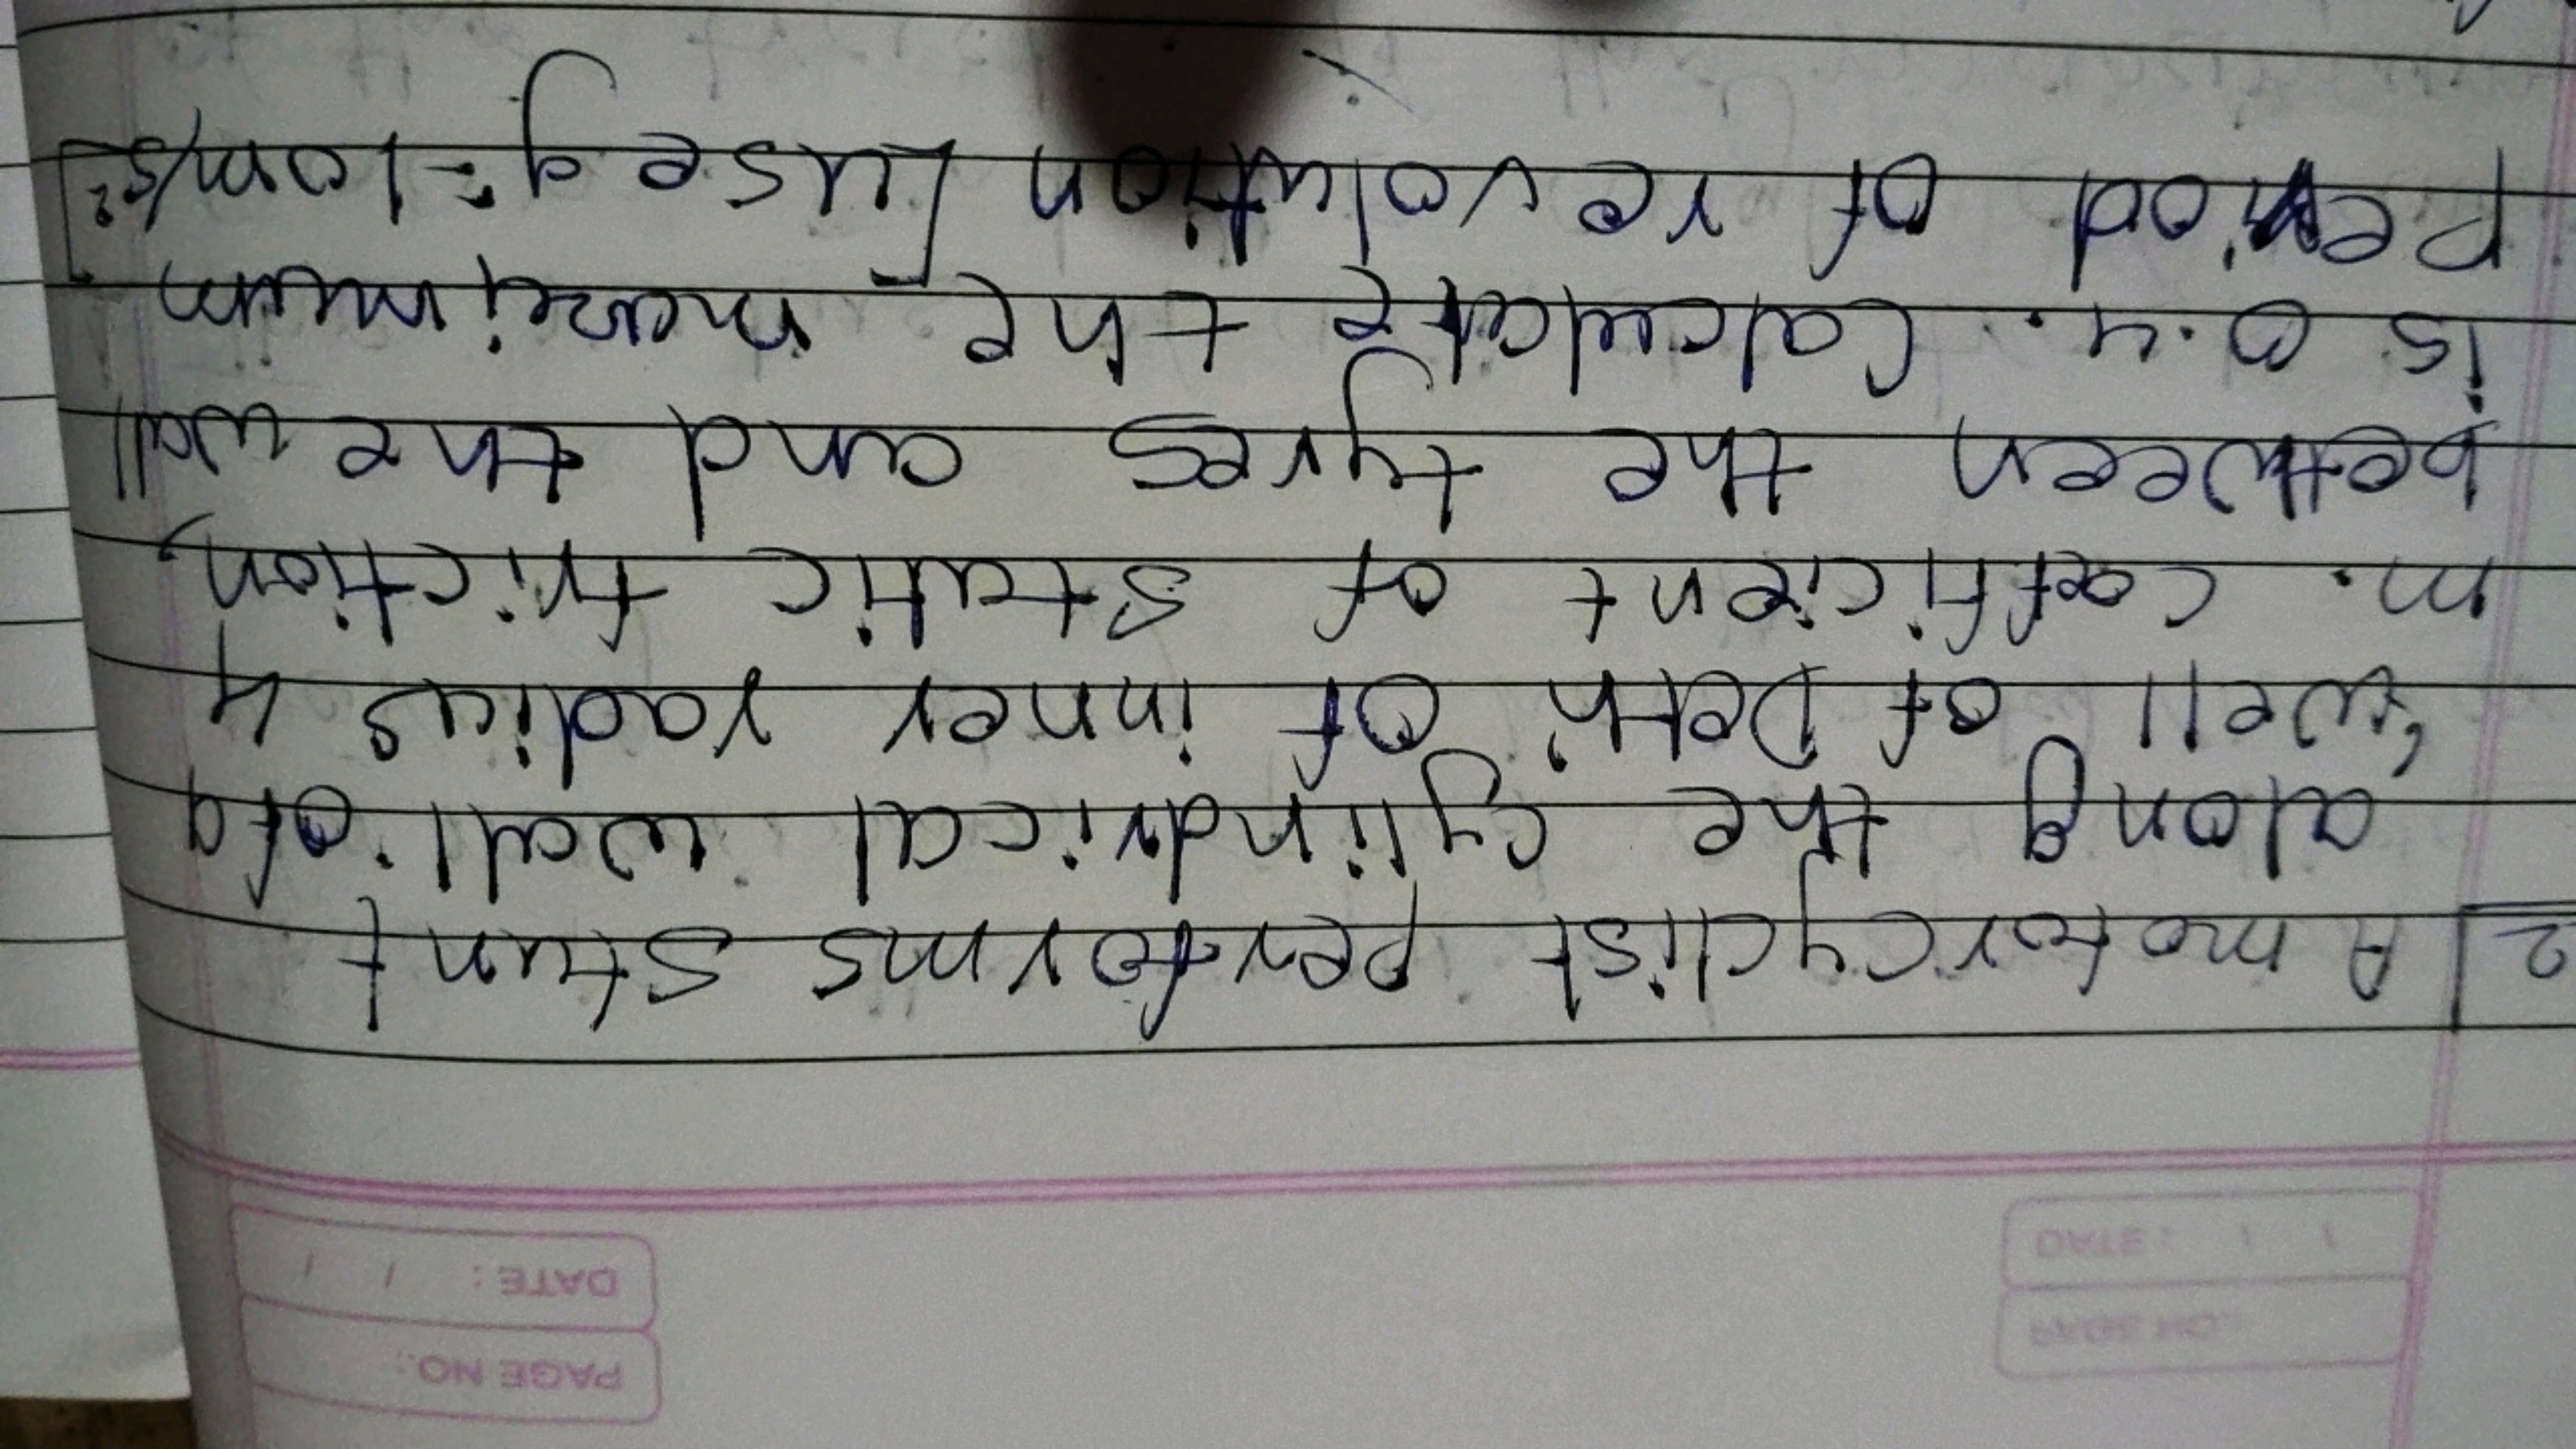 PAGE NO.:
DATE: / /
2] A motorcyclist performs stunt
along the cylindrical wall of a
'well of Deth' of inner radius 4
m. coefficient of static friction,
between the tyres and the wall
is 0.4. Calculate the maximum
Period of revolution [use g = 10 m/s²]